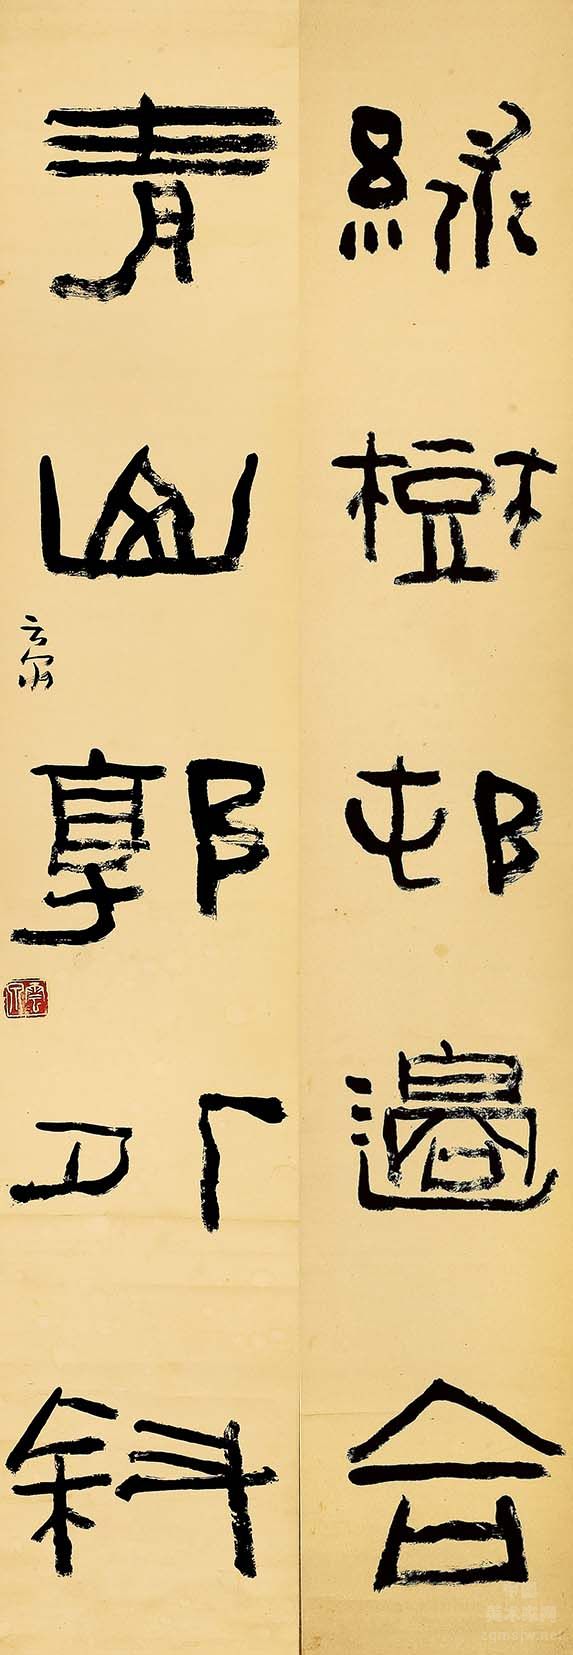 綠樹邨邊合
青山郭外斜
雲
中国
美术家网
zgmsjw.net